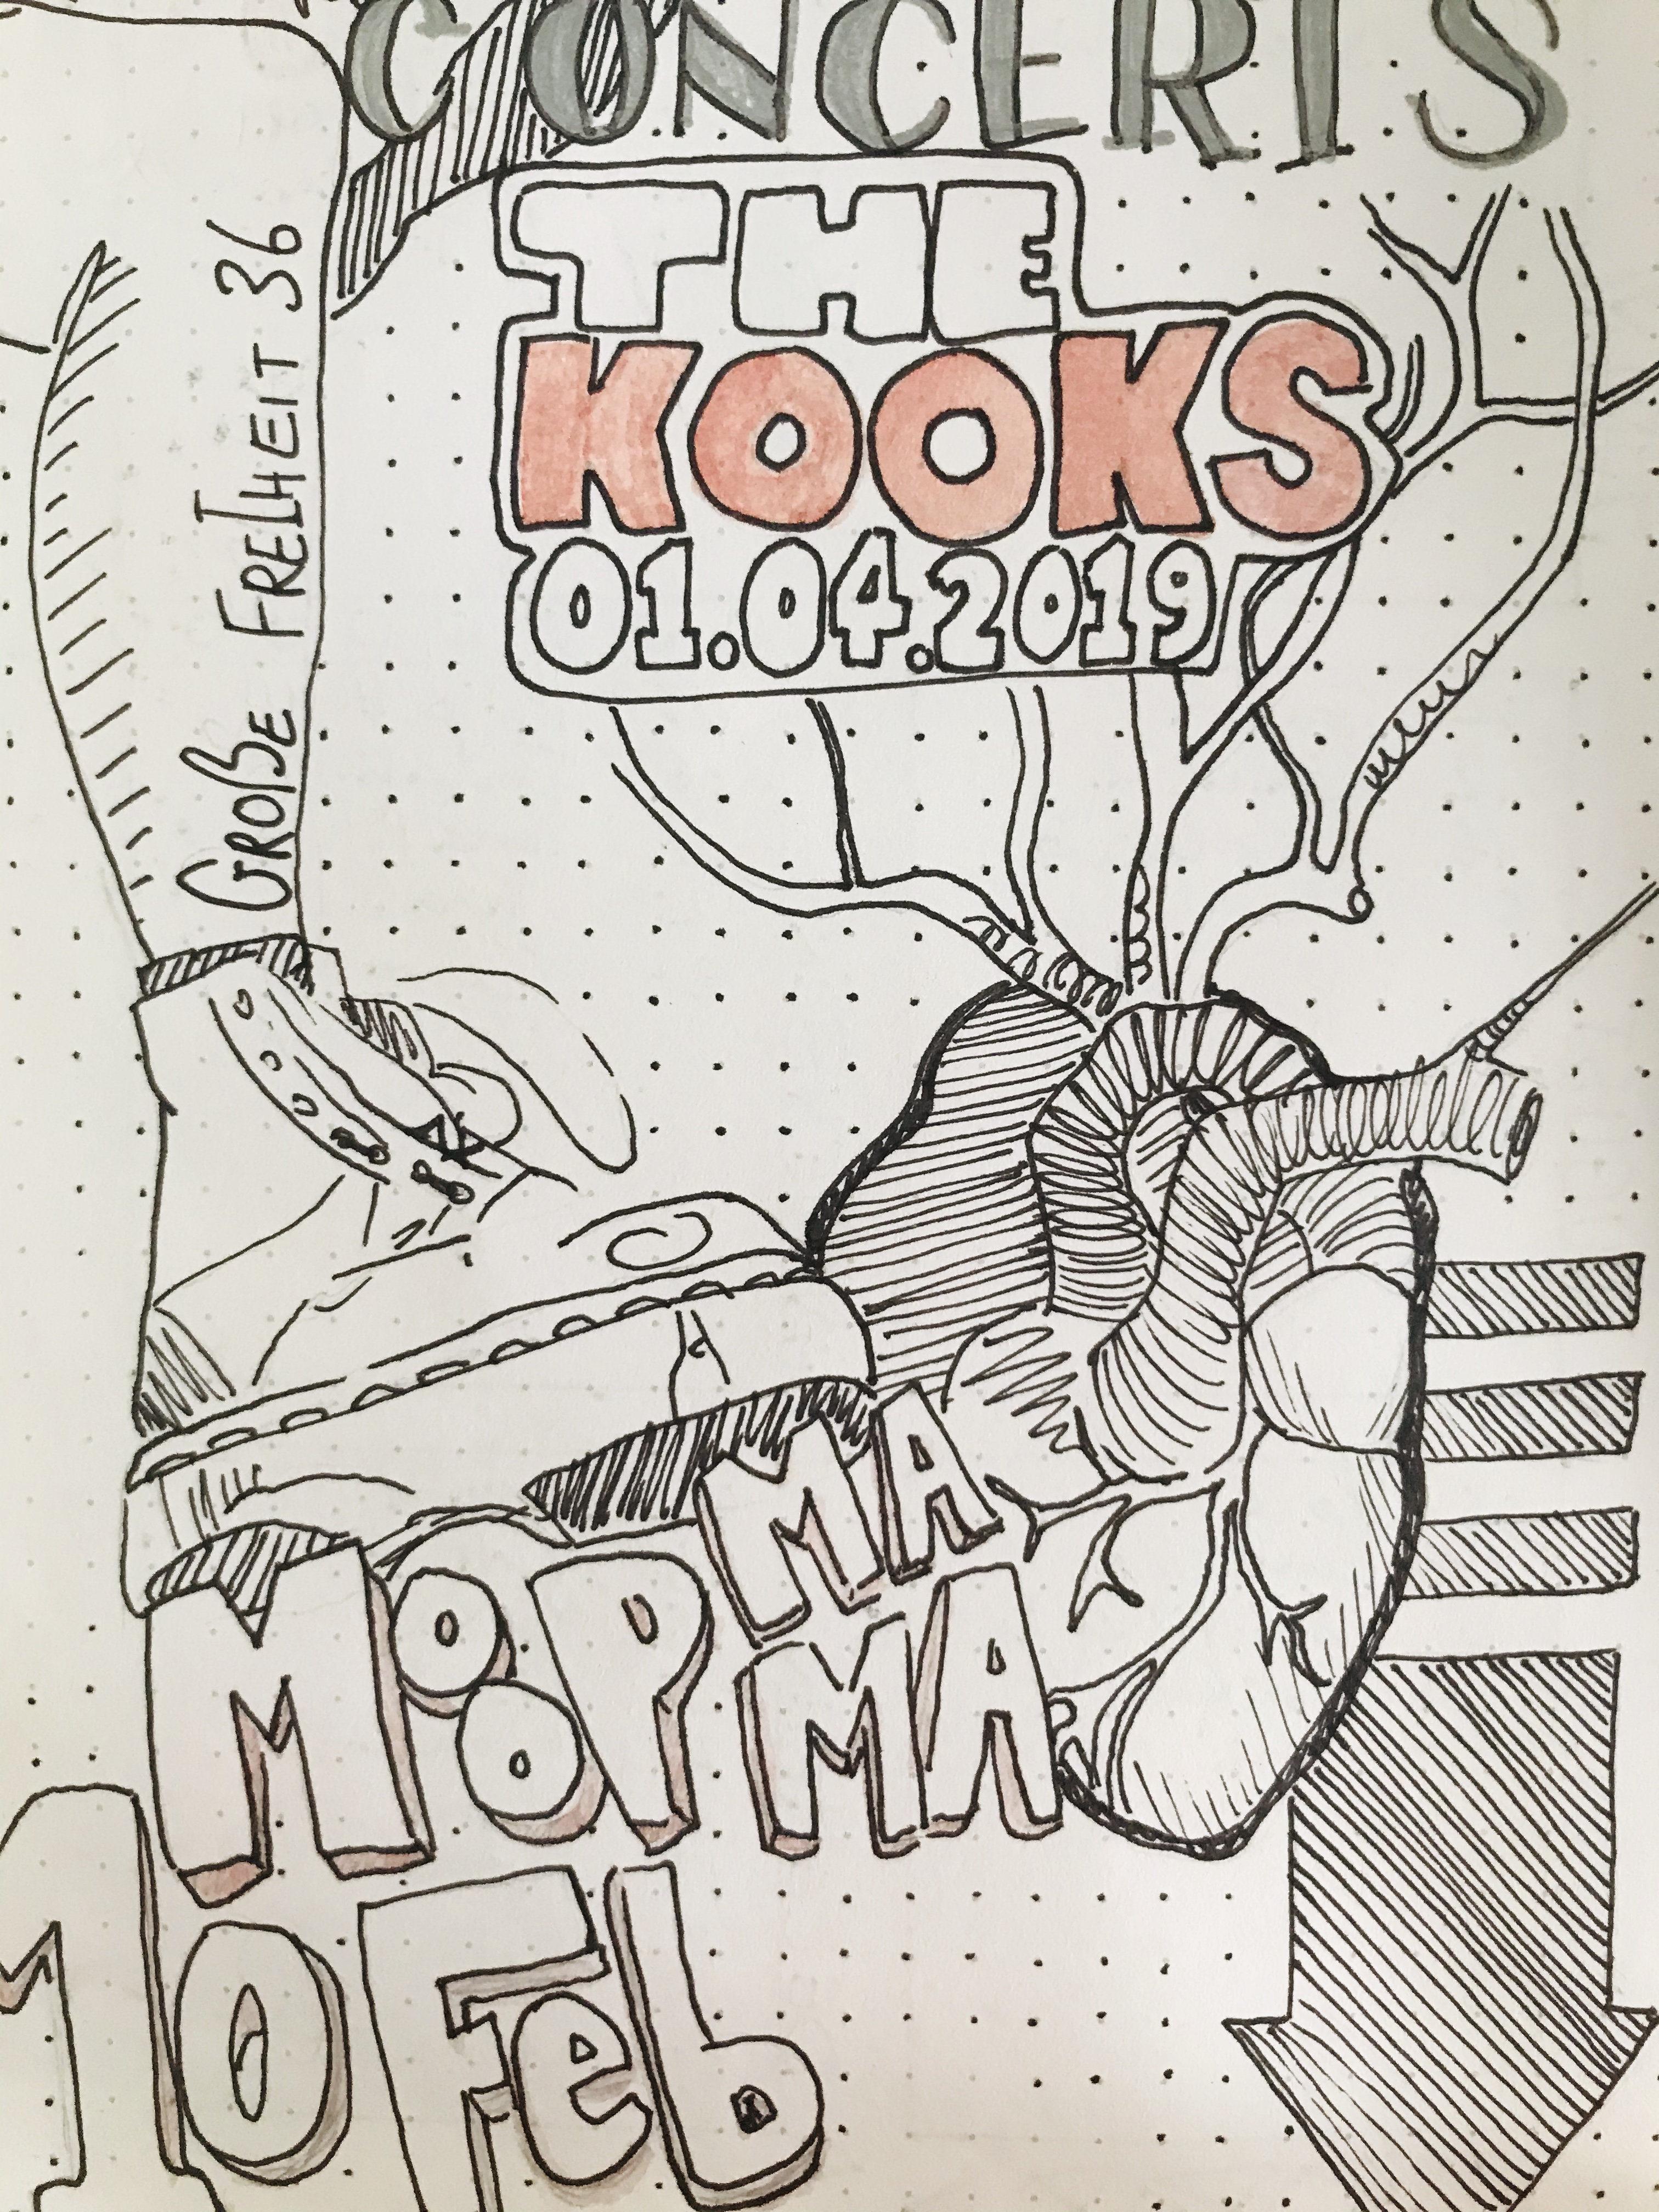 CONCERTS
THE
KOOKS
01.04.2019
GROßE FREIHEIT 36
MA
MOOP MA
10 Feb